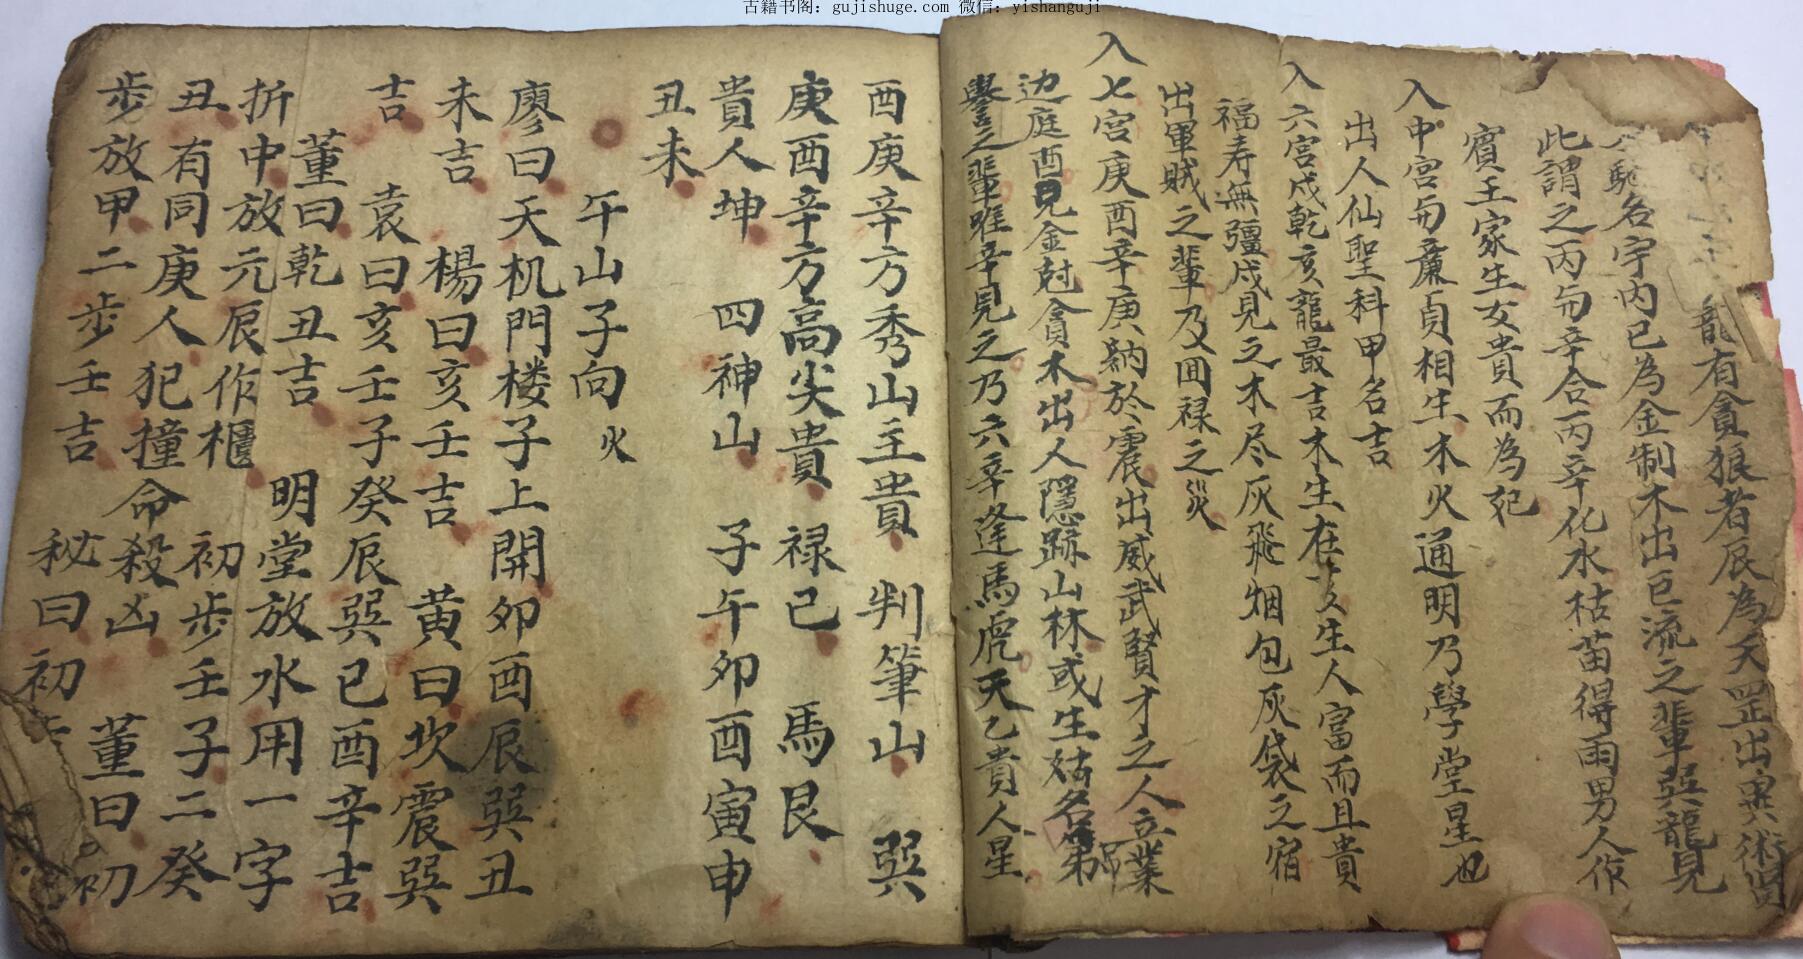 古籍书阁：gujishuge.com 微信：yishanguji
龍有貪狼者辰為天罡出異術
名宇内已為金制木出巨流之輩巽龍見
此謂之丙与辛合丙辛化水枯苗得雨男人作
賓王家生女貴而為妃
入中宫与亷貞相生木火通明乃學堂星也
出人仙聖科甲名吉
入六宫戍乾亥龍最吉木生在亥生人富而且貴
福寿無彊戍見之木尽灰飛烟包灰袋之宿
出軍賊之輩乃囬禄之災
入七宫庚酉辛庚納於震出威武賢才之人立業
边庭酉見金尅貪木出人隱跡山林或生姑名弟
譽之輩唯辛見之乃六辛逢馬虎天乙貴人星
酉庚辛方秀山主貴 判筆山 巽
庚酉辛方高尖貴 禄已 馬艮
貴人坤 四神山 子午卯酉寅申
丑未
午山子向 火
廖曰天机門楼子上開卯酉辰巽丑
未吉 楊曰亥壬吉 黄曰坎震巽
吉 袁曰亥壬子癸辰巽已酉辛吉
董曰乾丑吉 明堂放水用一字
折中放元辰作櫃 初步壬子二癸
丑有同庚人犯撞命殺凶 董曰初
步放甲二步壬吉 秘曰初